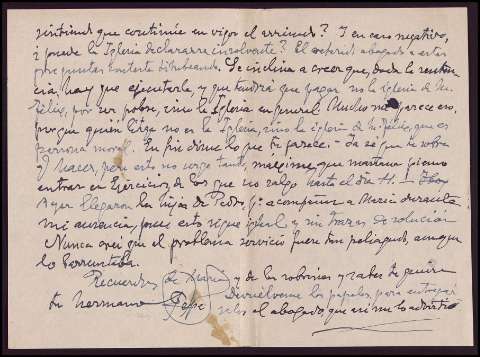 continúe en vigor el arriendo? Y en caso negativo,
¿puede la Iglesia declararse insolvente? El referido abogado a estas
preguntas contesta titubeando. Se inclina a creer que, dada la senten-
cia, hay que ejecutarla, y que tendrá que pagar no la iglesia de
por ser pobre, sino la Iglesia en general. Mucho me parece eso,
porque quien litiga no es la Iglesia, sino la iglesia de que es
persona moral. En fin dime lo que te parece. Ya sé que te
y hacer, pero esto no urge tanto, máxime que mañana pienso
entrar en Ejercicios de los que no salgo hasta el día
Ayer llegaron las hijas de Pedro y acompañan a María durante
mi ausencia, pues esto sigue igual y sin trazas de solución
Nunca creí que el problema servicio fuera tan peliagudo, aunque
lo barruntaba.
Recuerdos de María y de los sobrinos y sabes te quiere
tu hermano Pepe
Devuélveme los papeles, para entregár-
selos al abogado, que así me lo advirtió